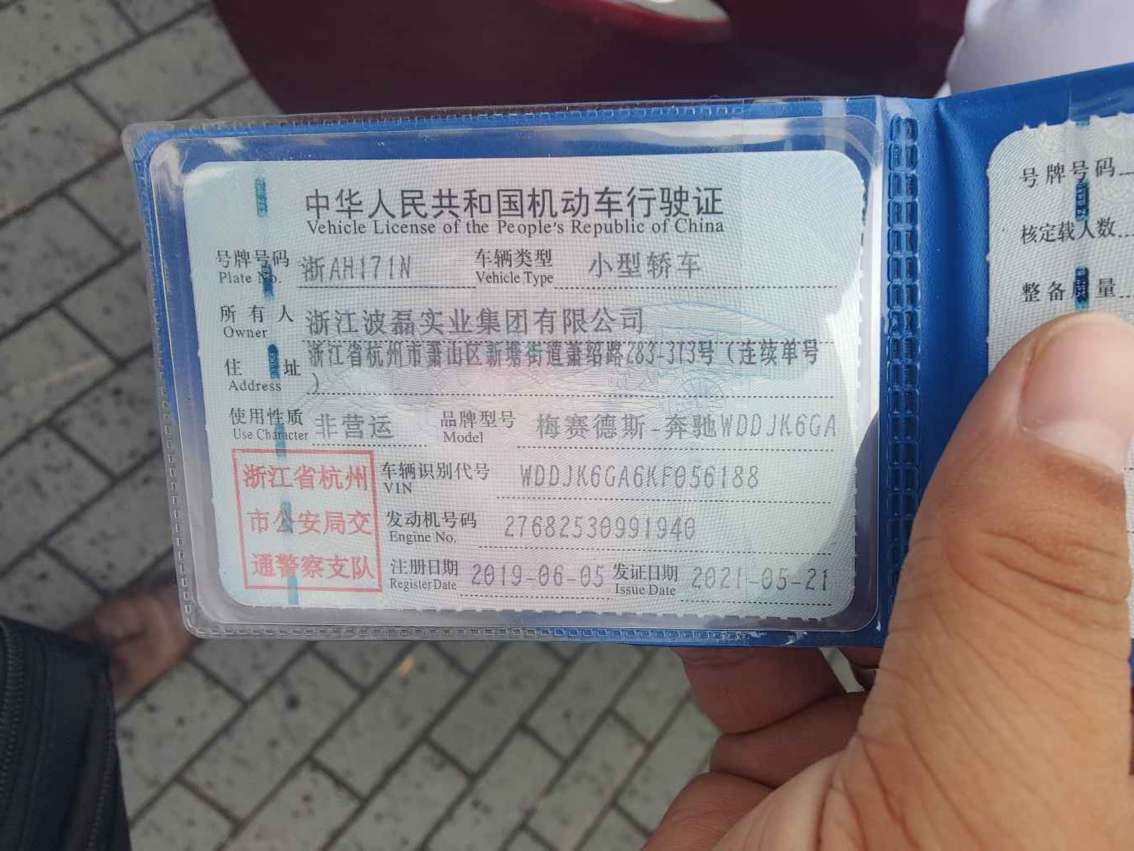 中华人民共和国机动车行驶证
Vehicle License of the People's Republic of China
号牌号码 浙AH171N 车辆类型 小型轿车
Plate No. Vehicle Type
所有人 浙江波磊实业集团有限公司
Owner
住址 浙江省杭州市萧山区新塘街道萧绍路283-313号(连续单号
Address )
使用性质 非营运 品牌型号 梅赛德斯-奔驰WDDJK6GA
Use Character Model
浙江省杭州
市公安局交
通警察支队
车辆识别代号 WDDJK6GA6KF056188
VIN
发动机号码 27682530991940
Engine No.
注册日期 2019-06-05 发证日期 2021-05-21
Register Date Issue Date
号牌号码
核定载人数
整备质量